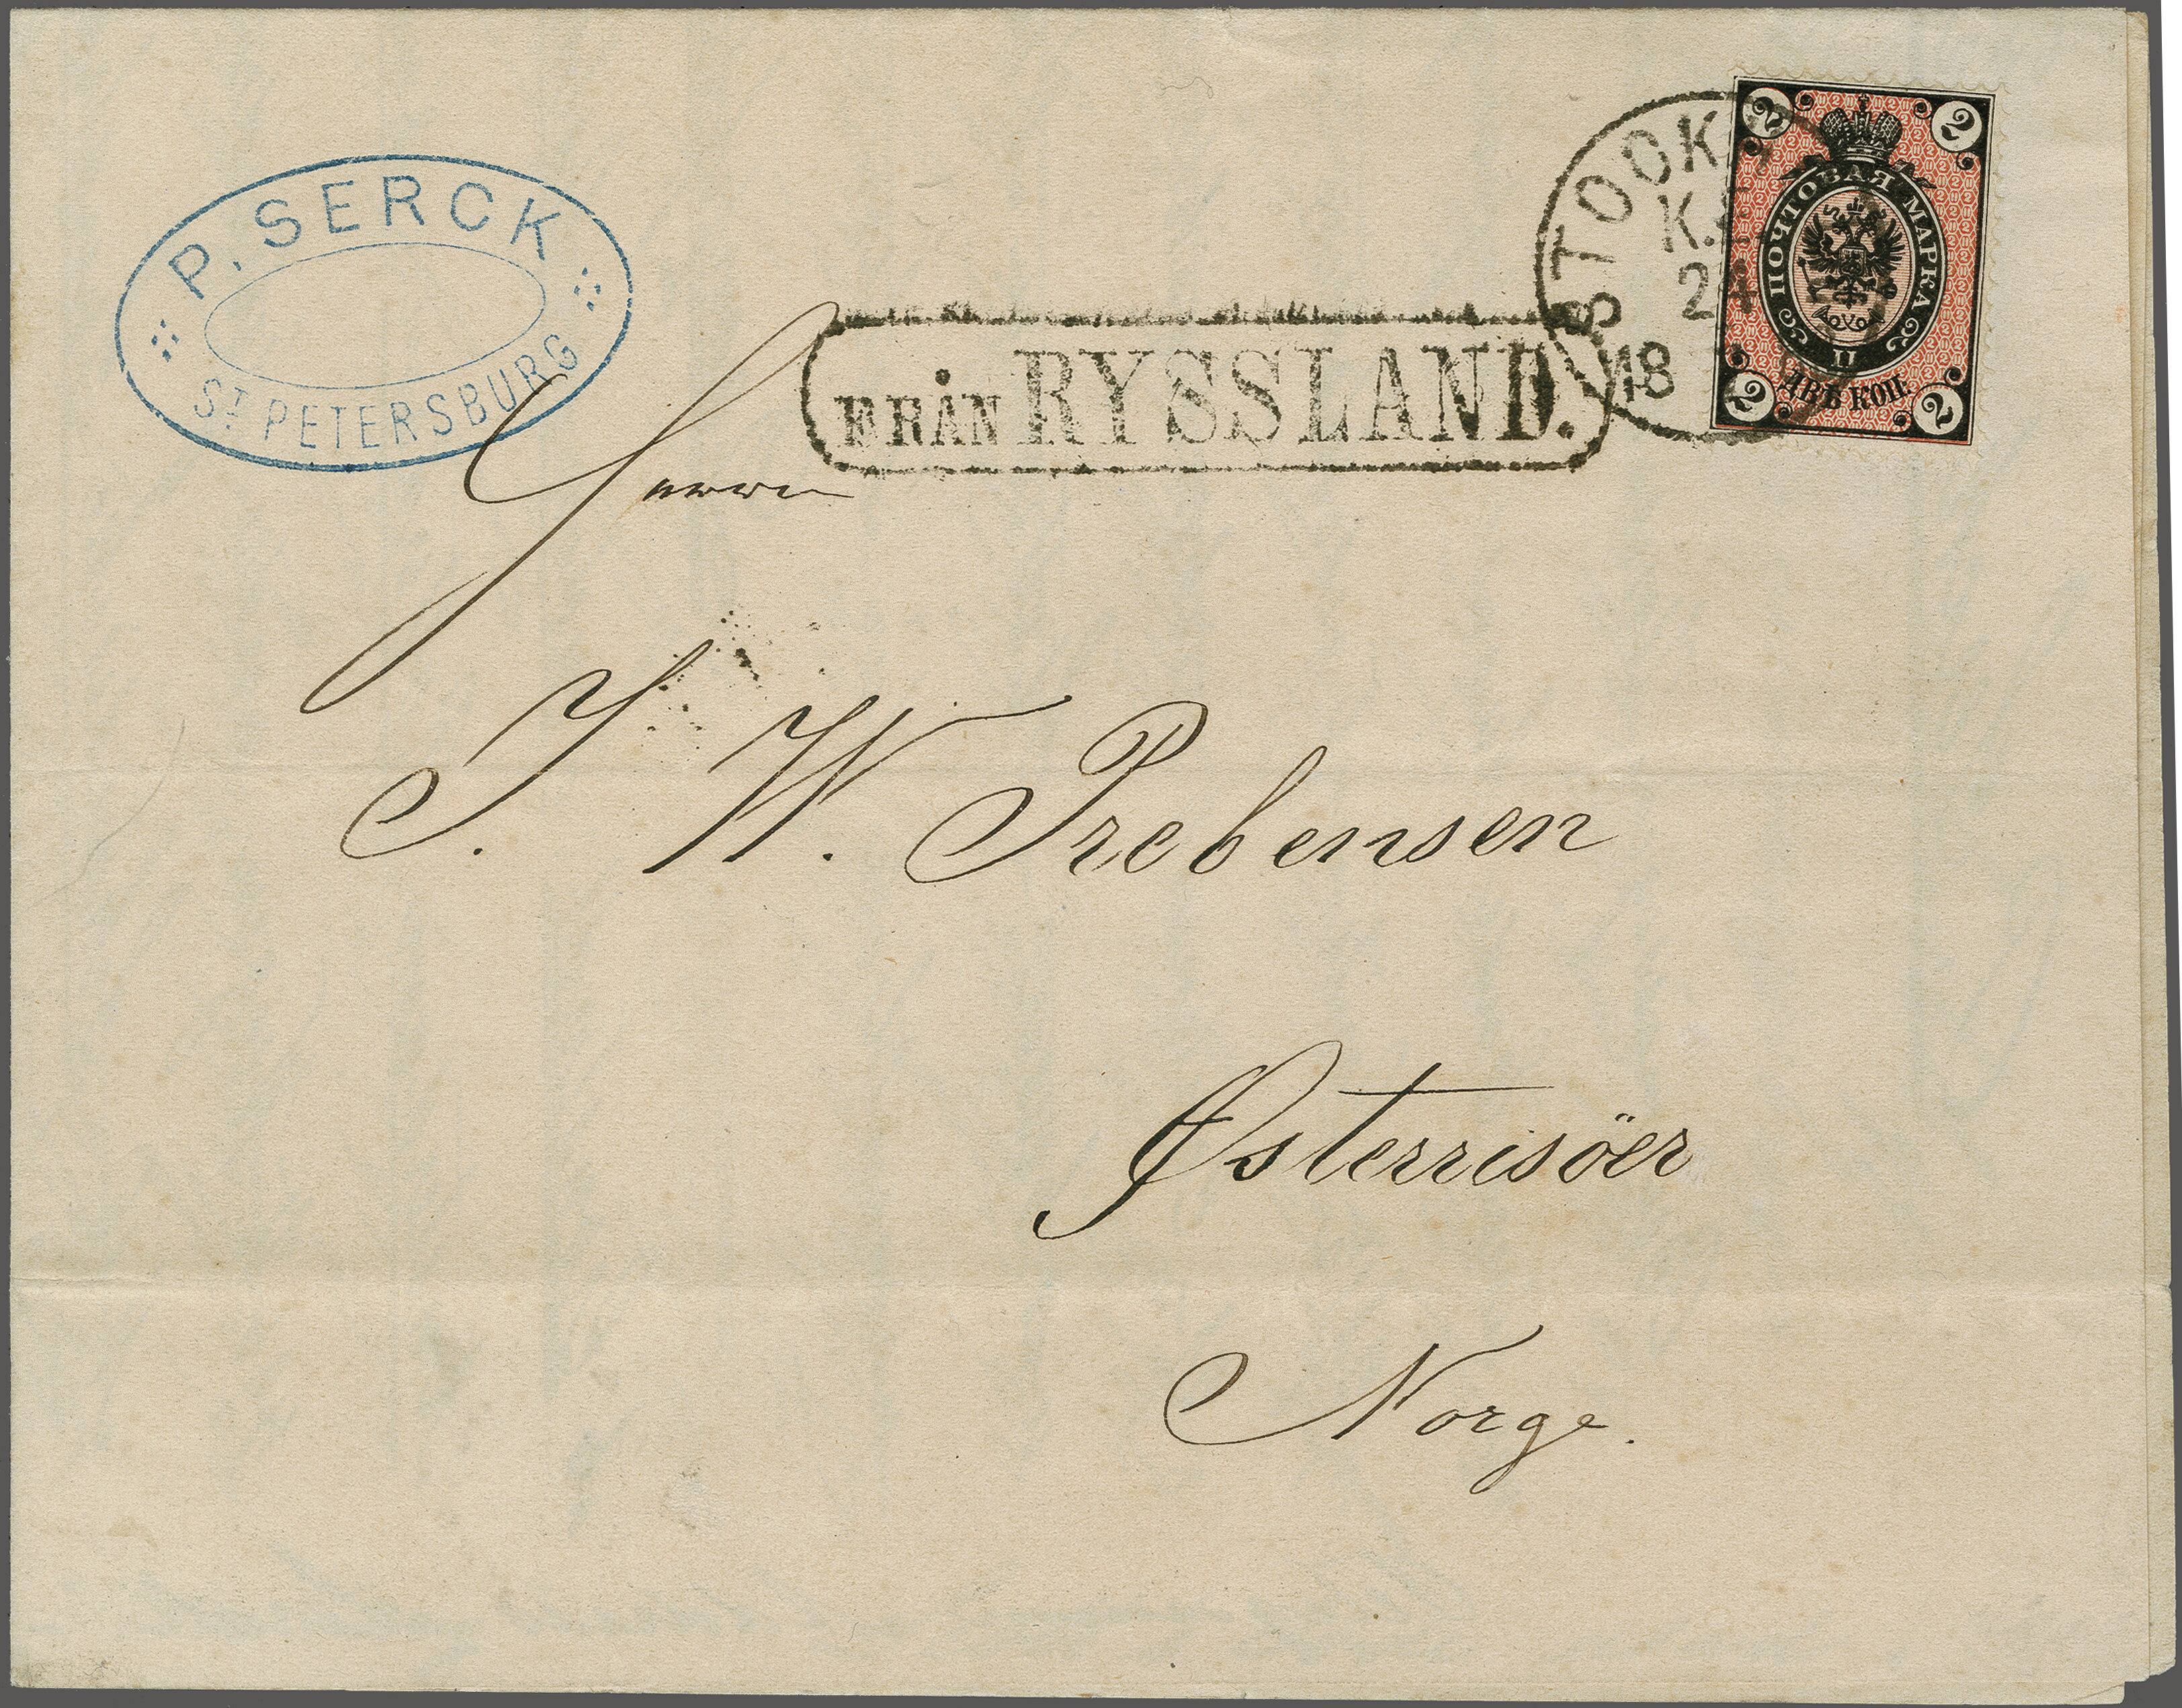 P. SERCK
ST. PETERSBURG
FRÅN RYSSLAND.
STOCK
K.
24
18
2 2
ПОЧТОВАЯ МАРКА
II
ДВѢ КОП.
2 2
Herrn
J. W. Prebensen
Østerrisöer
Norge.